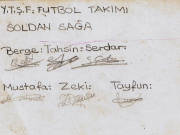 Y.T.Ş.F: FUTBOL TAKIMI
SOLDAN SAĞA
Berge: Tahsin: Serdar:
Mustafa: Zeki: Tayfun: